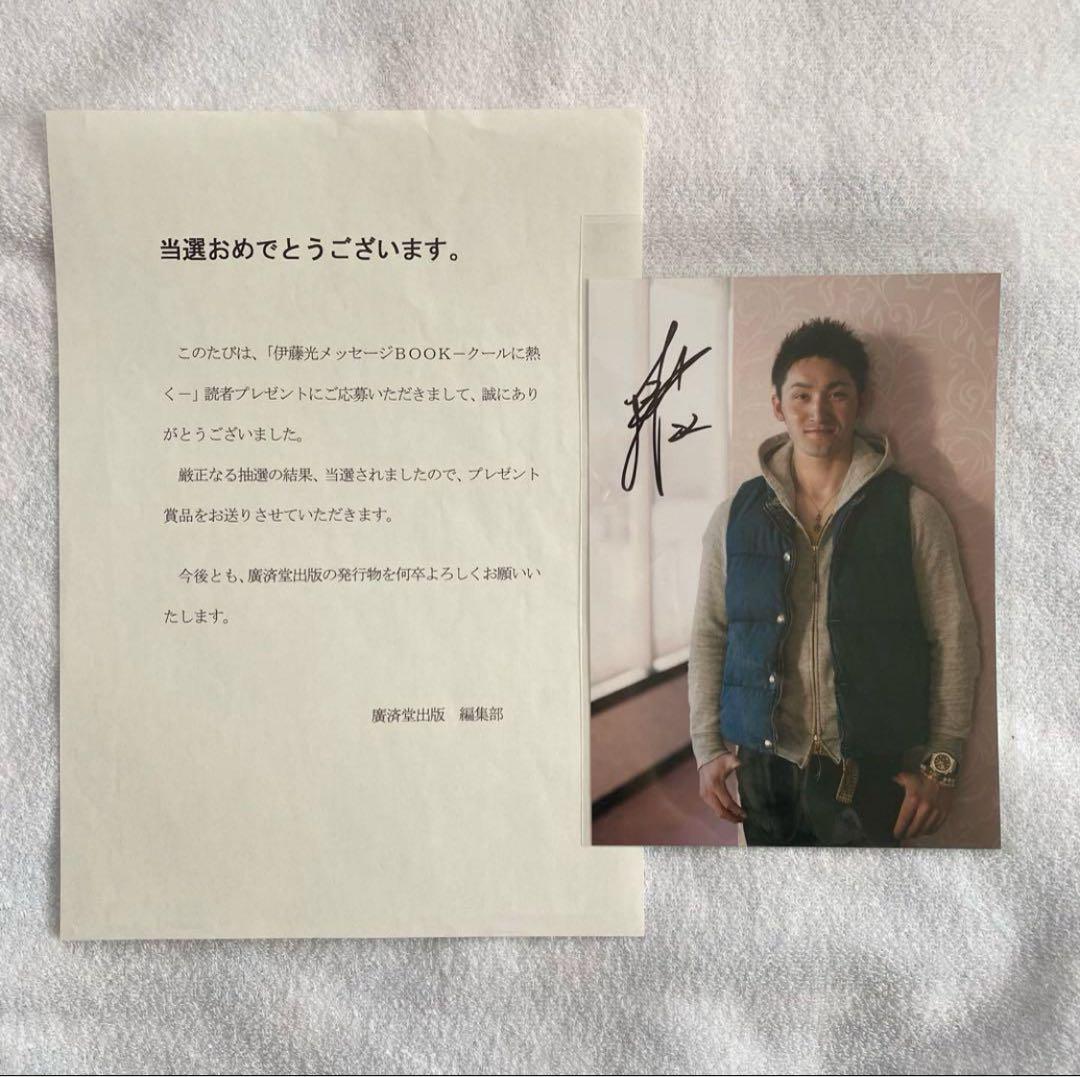 当選おめでとうございます。
このたびは、「伊藤光メッセージＢＯＯＫ－クールに熱
く－」読者プレゼントにご応募いただきまして、誠にあり
がとうございました。
厳正なる抽選の結果、当選されましたので、プレゼント
賞品をお送りさせていただきます。
今後とも、廣済堂出版の発行物を何卒よろしくお願いい
たします。
廣済堂出版　編集部
22